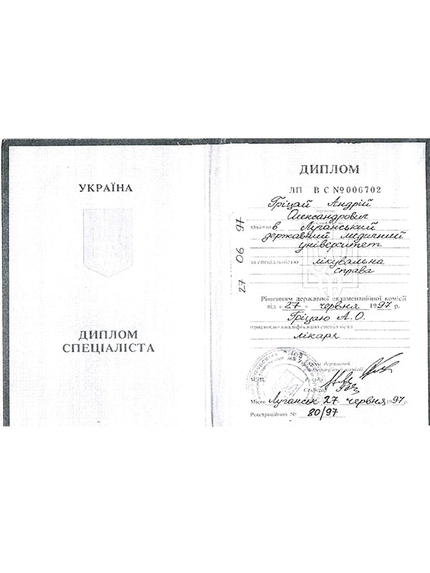 УКРАЇНА
ДИПЛОМ
СПЕЦІАЛІСТА
ДИПЛОМ
ЛП ВС №006702
Гріцай Андрій
Олександрович
в Луганський
державний медичний
університет
за спеціальністю лікувальна
справа
Рішенням державної екзаменаційної комісії
від «27» червня 1997 р.
Гріцаю А.О.
присвоєно кваліфікацію спеціаліста
лікаря
М.П.
Місто Луганськ 27 червня 1997 р.
Реєстраційний № 80/97
27 06 97